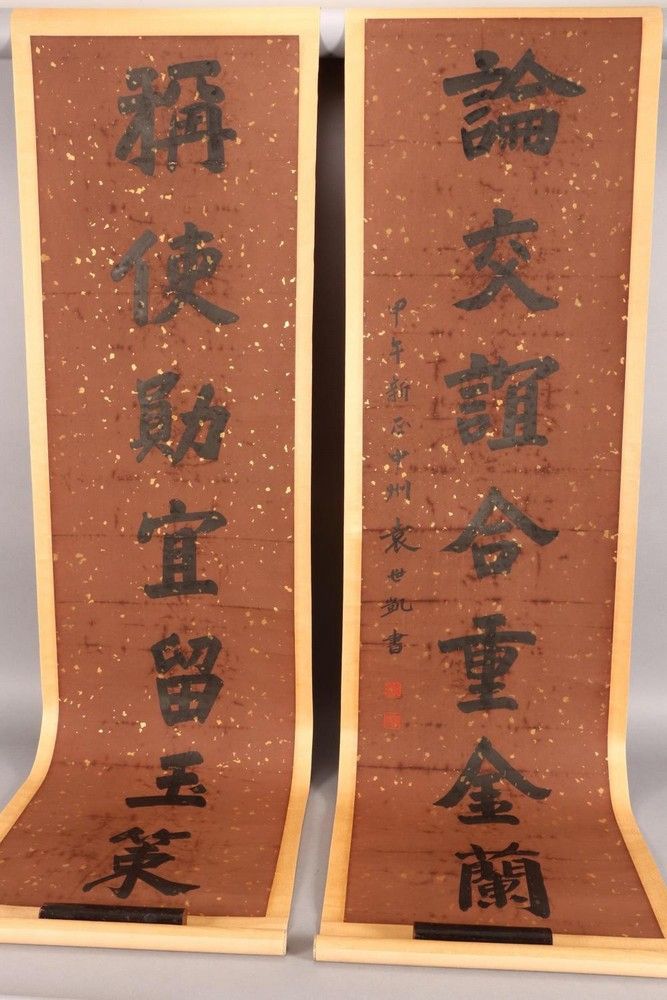 論交誼合重金蘭
甲午新正中州袁世凱書
稱使勛宜留玉策